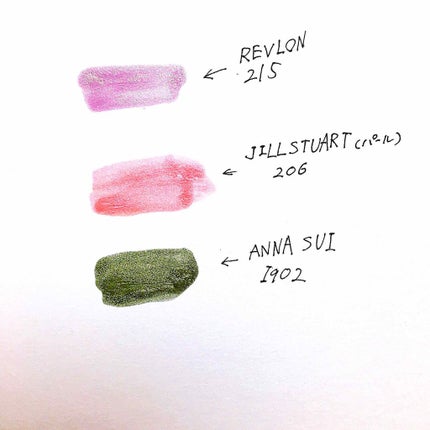 REVLON
215
JILLSTUART (パール)
206
ANNA SUI
I902